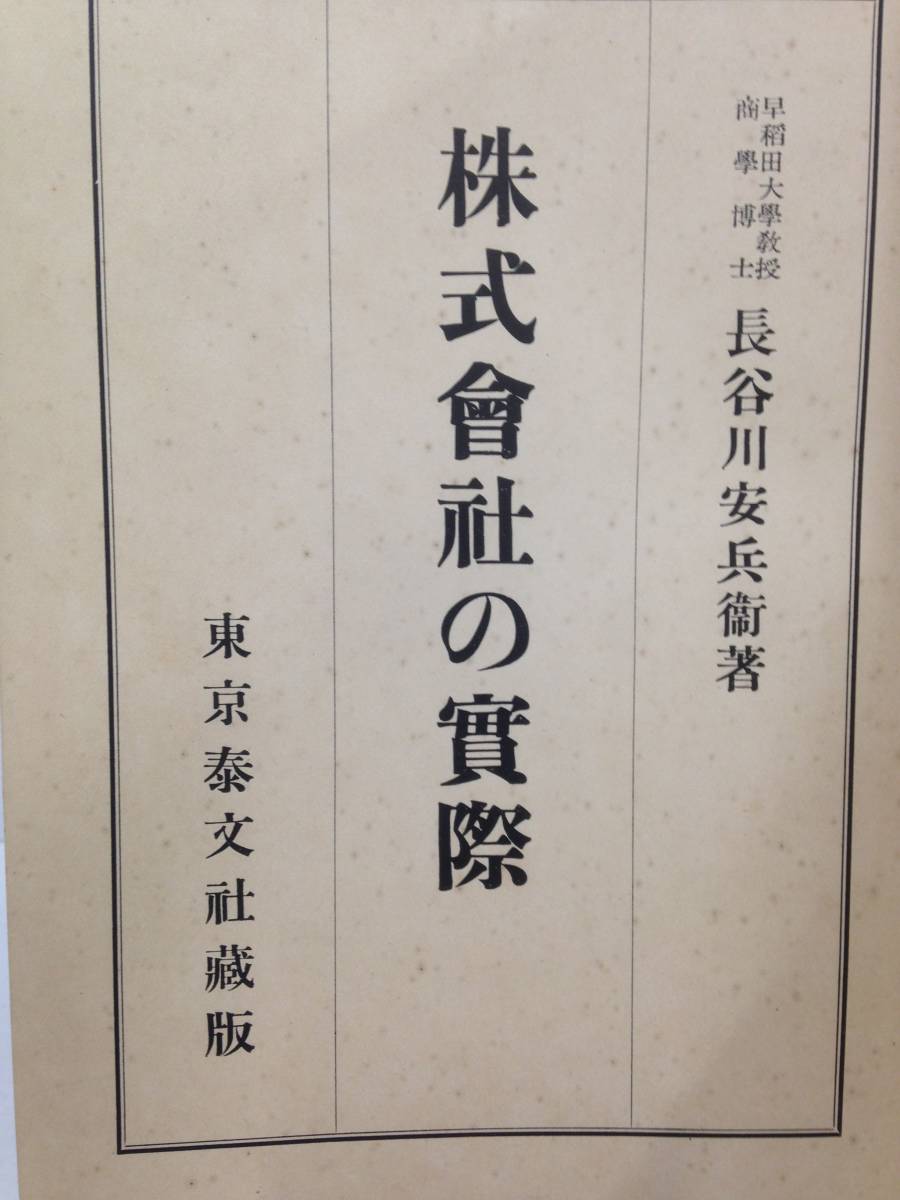 早稻田大學教授
商學博士
長谷川安兵衞著
株式會社の實際
東京泰文社藏版